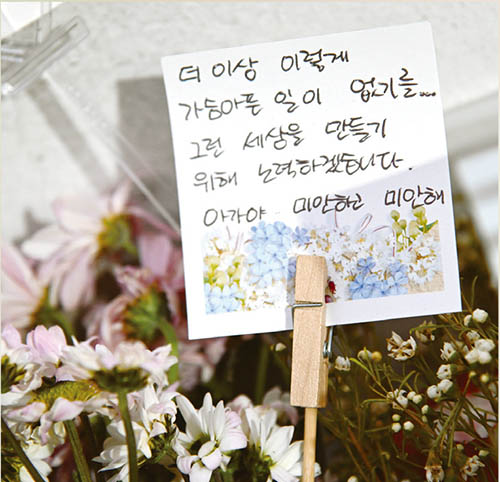 더 이상 이렇게
가슴아픈 일이 없기를...
그런 세상을 만들기
위해 노력하겠습니다.
아가야 미안하고 미안해